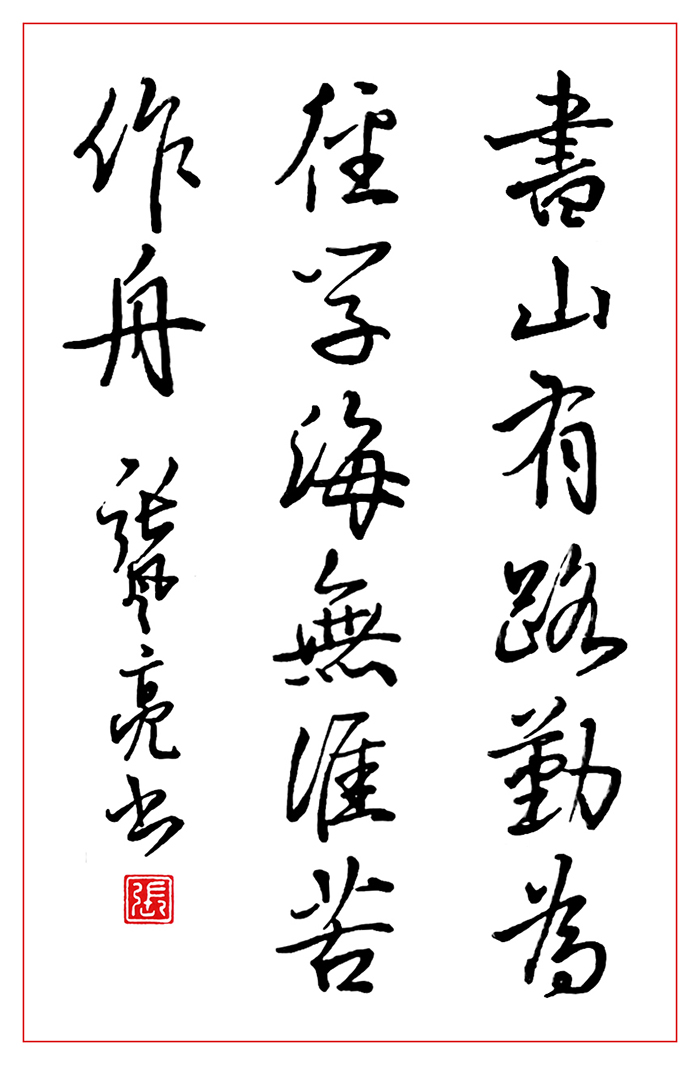 書山有路勤為
徑学海無涯苦
作舟
張亮书
張